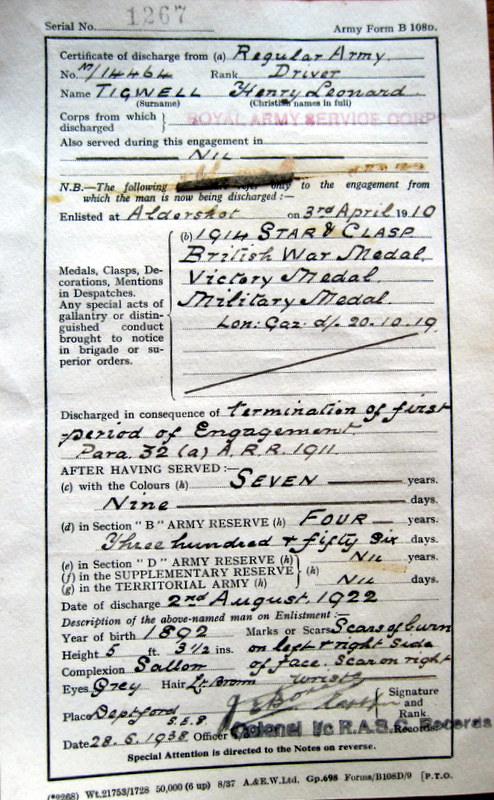 Serial No. 1267 Army Form B 108D.
Certificate of discharge from (a) Regular Army
No. M/14464 Rank Driver
Name TIGWELL Henry Leonard
(Surname) (Christian names in full)
Corps from which discharged } ROYAL ARMY SERVICE CORPS
Also served during this engagement in
Nil
N.B.—The following refer only to the engagement from
which the man is now being discharged :—
Enlisted at Aldershot on 3rd April 1910
Medals, Clasps, De-
corations, Mentions
in Despatches.
Any special acts of
gallantry or distin-
guished conduct
brought to notice
in brigade or su-
perior orders.
(b) 1914 STAR & CLASP
British War Medal
Victory Medal
Military Medal
Lon: Gaz: d/. 20.10.19.
Discharged in consequence of termination of first
period of Engagement
Para. 32 (a) A.R.R. 1911
AFTER HAVING SERVED :—
(c) with the Colours (h) SEVEN years.
Nine days.
(d) in Section "B" ARMY RESERVE (h) FOUR years.
Three hundred & fifty six days.
(e) in Section "D" ARMY RESERVE (h)
(f) in the SUPPLEMENTARY RESERVE
(g) in the TERRITORIAL ARMY (h)
(h) NIL years.
NIL days.
Date of discharge 2nd August. 1922
Description of the above-named man on Enlistment :—
Year of birth 1892 Marks or Scars Scars of burn
Height 5 ft. 3½ ins. on left & right side
Complexion Sallow of face. Scar on right
Eyes Grey Hair Lt. Brown wrist
Signature
and
Rank
Place Deptford
S.E.8.
Colonel i/c R.A.S.C. Records
Date 28.6.1938 Officer i/c Records
Special Attention is directed to the Notes on reverse.
(*2268) Wt.21753/1728 50,000 (6 up) 8/37 A.&E.W.Ltd. Gp.698 Forms/B108D/9 [P.T.O.